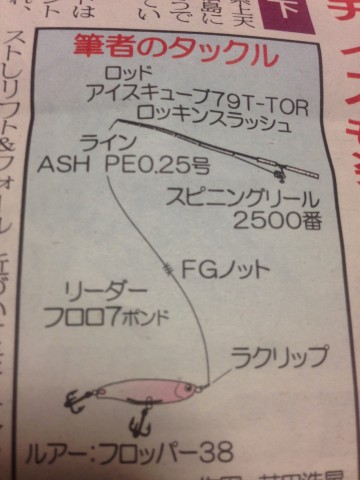 下
筆者のタックル
ロッド
アイスキューブ79T-TOR
ロッキンスラッシュ
ライン
ASH PE0.25号
スピニングリール
2500番
FGノット
リーダー
フロロ7ポンド
ラクリップ
ルアー:フロッパー38
ストしリフト&フォール